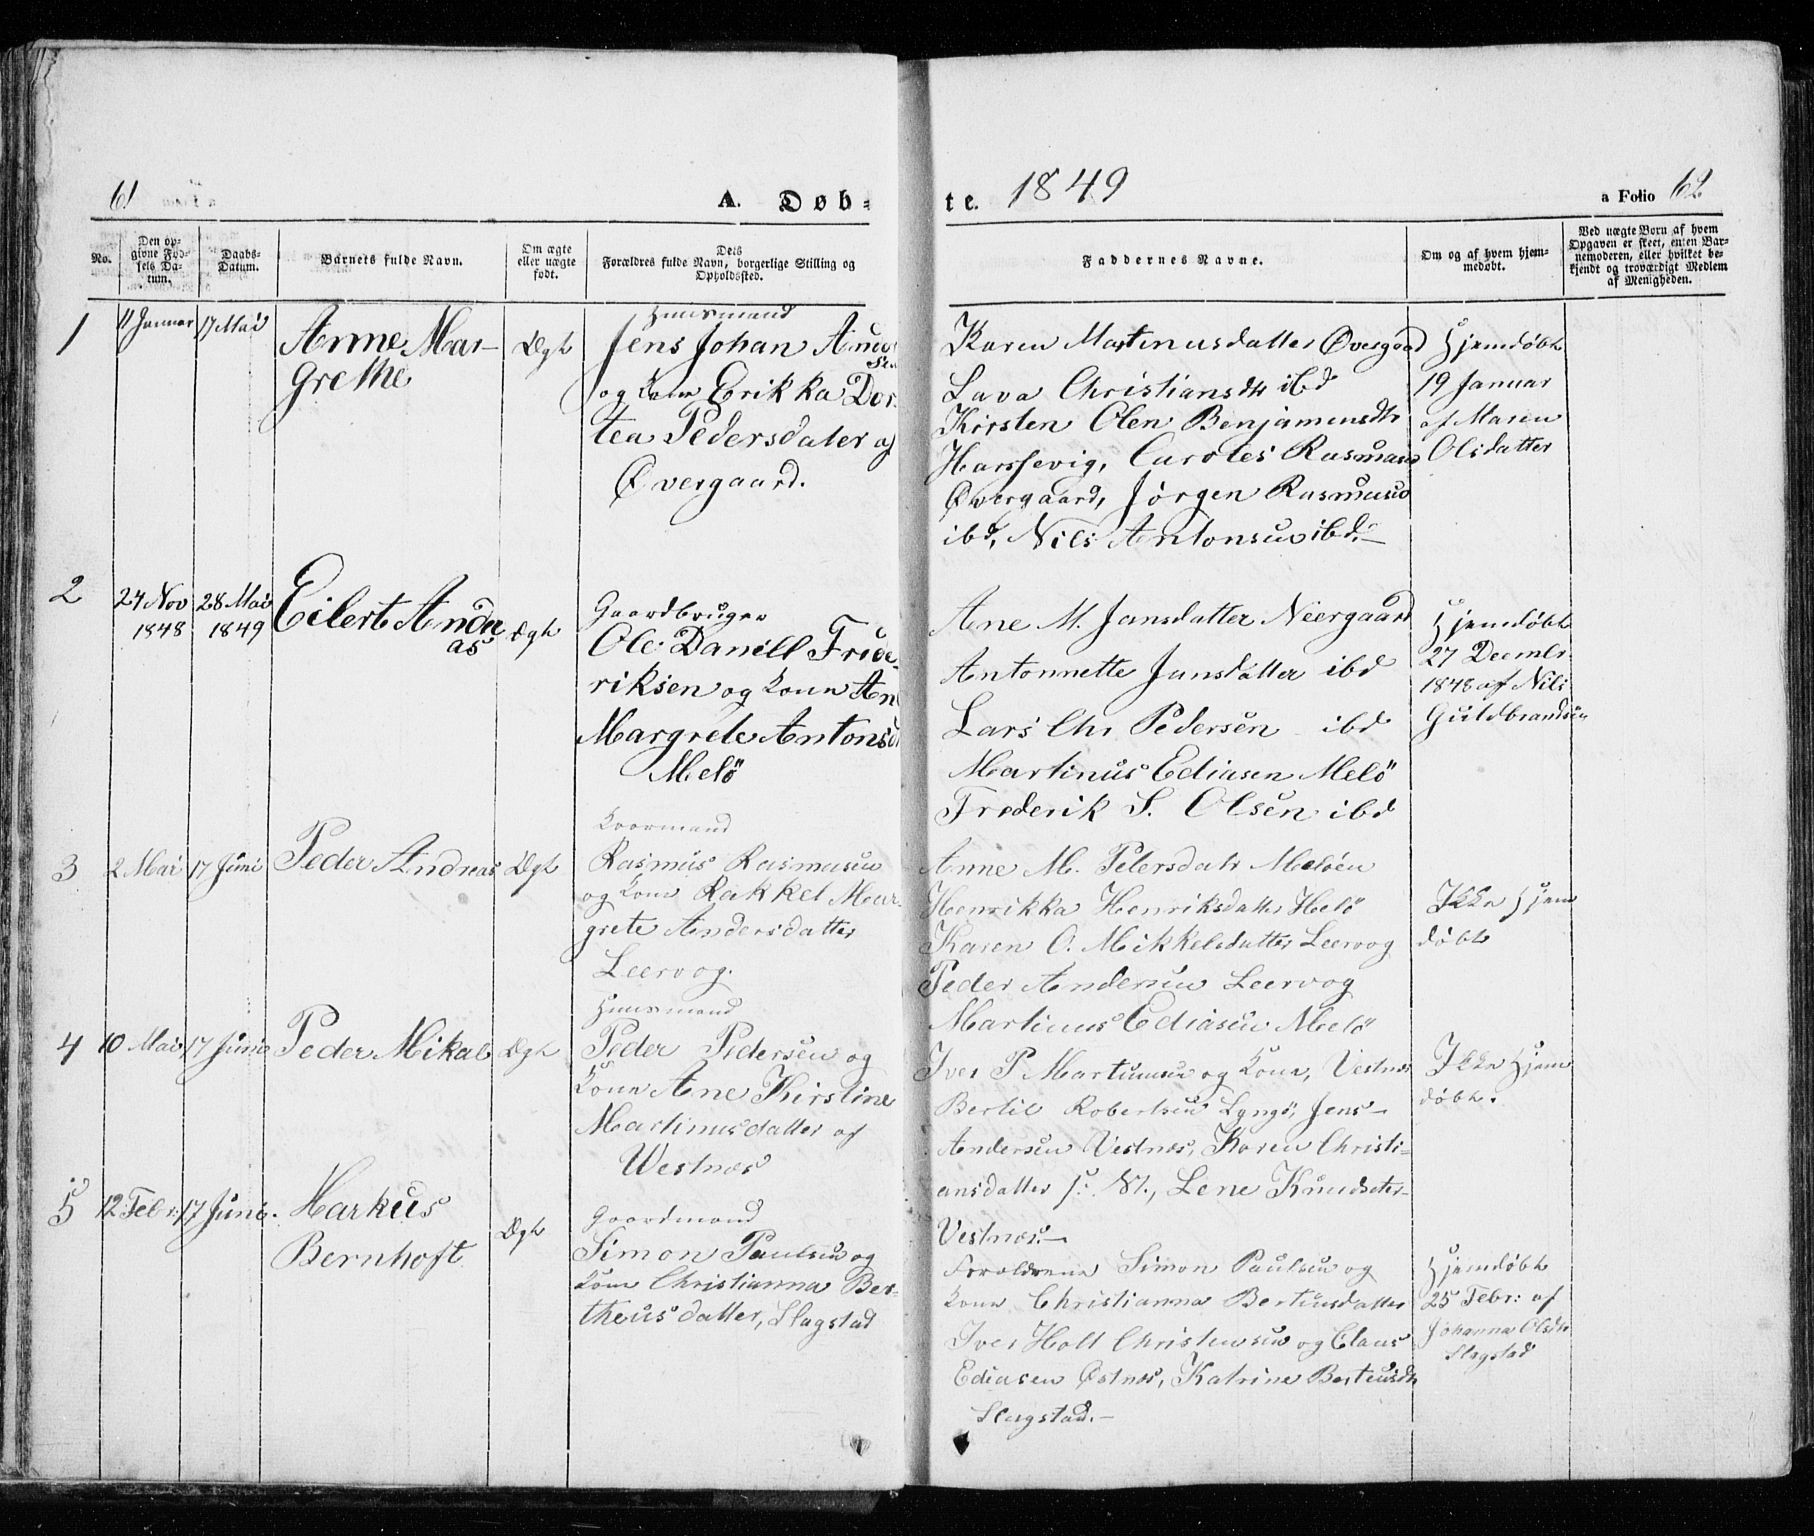 61
A. Døb=
te. 1849
a Folio 62
No.
Den op-
givne Fød-
sels Da-
tum.
Daabs-
Datum.
Barnets fulde Navn.
Om ægte
eller uægte
født.
Dets
Forældres fulde Navn, borgerlige Stilling og
Opholdssted.
Faddernes Navne.
Om og af hvem hjem-
medøbt.
Ved uægte Born af hvem
Opgaven er skeet, enten Bar-
nemoderen, eller hvilket be-
kjendt og troværdigt Medlem
af Menigheden.
1
11 Januar
17 Mai
Anne Mar-
grethe
Ægte
Huusmand
Jens Johan
og Kone Erikka Dor-
tea Pedersdater af
Øvergaard.
Karen Martinusdatter Øvergaard
Lava Christiansdtr ibd
Kirsten Olen Benjaminsdtr
Harsfevig, Carotes Rasmusen
Øvergaard, Jörgen Rasmusen
ibd, Nils Antonsen ibd.-
Hjemdöbt
19 Januar
af Maren
Olsdatter
2
24 Nov
1848
28 Mai
1849
Eilert Andre
as
Ægte
Gaardbruger
Ole Daniell Fride-
riksen og Kone An
Margrete Antonsd
Melö
Ane M. Jansdatter Neergaard
Antonnette Jansdatter ibd
Lars Chr Pedersen ibd
Martinus Ediasen Melö
Frederik S. Olsen ibd
Hjemdöbt
27 Decmbr.
1848 af Nils
Guldbrandsen
3
2 Mai
17 Juni
Peder Andreas
Ægte
Rasmus Rasmusen
og Kone Rakkel Mar-
grete Andersdatter
Leervog.
Anne M. Petersdatr Melöen
Henrikka Henriksdatter Melö
Karen O. Mikkelsdatter Leervog
Peder Andersen Leervog
Martinus Ediasen Melö
Ikke Hjem
döbt
4
10 Mai
17 Juni
Peder Mikal
Ægte
Huusmand
Peder Pedersen og
Kone Ane Kirstine
Martinusdatter af
Westnæs
Iver P Martinusen og Kone, Vestnæs
Bertil Robertsen Lyngö, Jens-
Andersen Vestnæs, Karen Christi-
ansdatter Lene Knudsdter-
Vestnæs.-
Ikke Hjem
döbt.
5
12 Febr:
17 Juni.
Markus
Bernhoft
Ægte
Gaardmand
Simon Paulsen og
Kone Christianna Ber-
theusdatter, Slagstad
Forældrene Simon Paulsen og
Kone Christianna Berteusdatter
Iver Holt Christensen og Claus
Ediasen Östnæs, Katrine Berteusdtr
Slagstad.-
Hjemdöbt
25 Febr: af
Johanna Olsdtr
Slagstad